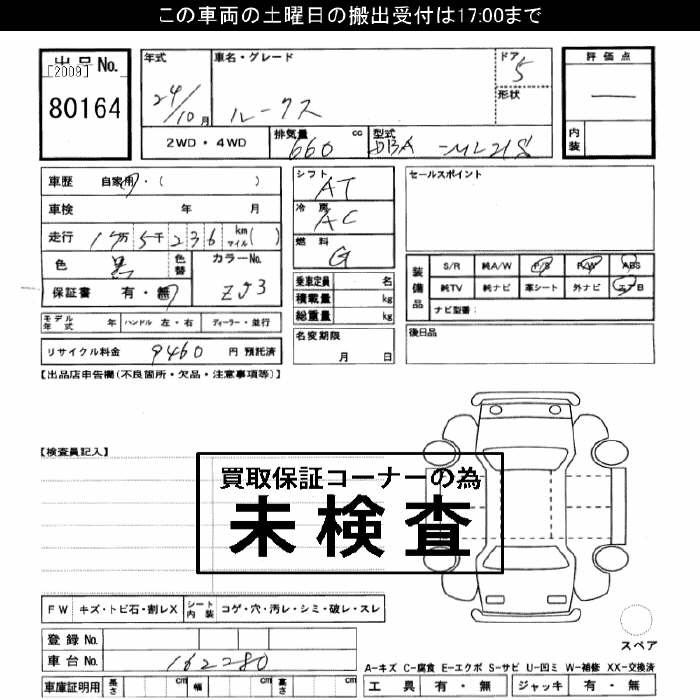 この車両の土曜日の搬出受付は17:00まで
出品No.
[2009]
80164
年式
24/10月
車名・グレード
ルークス
ドア
5
形状
評価点
内装
2WD・4WD
排気量
660 cc
型式
DBA-ML21S
車歴 自家用・( )
車検 年 月
走行 1万5千236 km マイル( )
色 黒 色替
カラーNo.
ZJ3
保証書 有・無
シフト
AT
冷房
AC
燃料
G
乗車定員 名
積載量 kg
総重量 kg
名変期限
月 日
セールスポイント
装備品
S/R 純A/W P/S P/W ABS
純TV 純ナビ 革シート 外ナビ エアB
ナビ型番:
後日品
モデル年式 年 ハンドル 左・右 ディーラー・並行
リサイクル料金 9460 円 預託済
【出品店申告欄(不良箇所・欠品・注意事項等)】
【検査員記入】
買取保証コーナーの為
未検査
FW キズ・トビ石・割レX シート内装 コゲ・穴・汚レ・シミ・破レ・スレ
登録No.
車台No. 162280
車庫証明用 長さ cm 幅 cm 高さ cm
スペア
A-キズ C-腐食 E-エクボ S-サビ U-凹ミ W-補修 XX-交換済
工具 有・無 ジャッキ 有・無